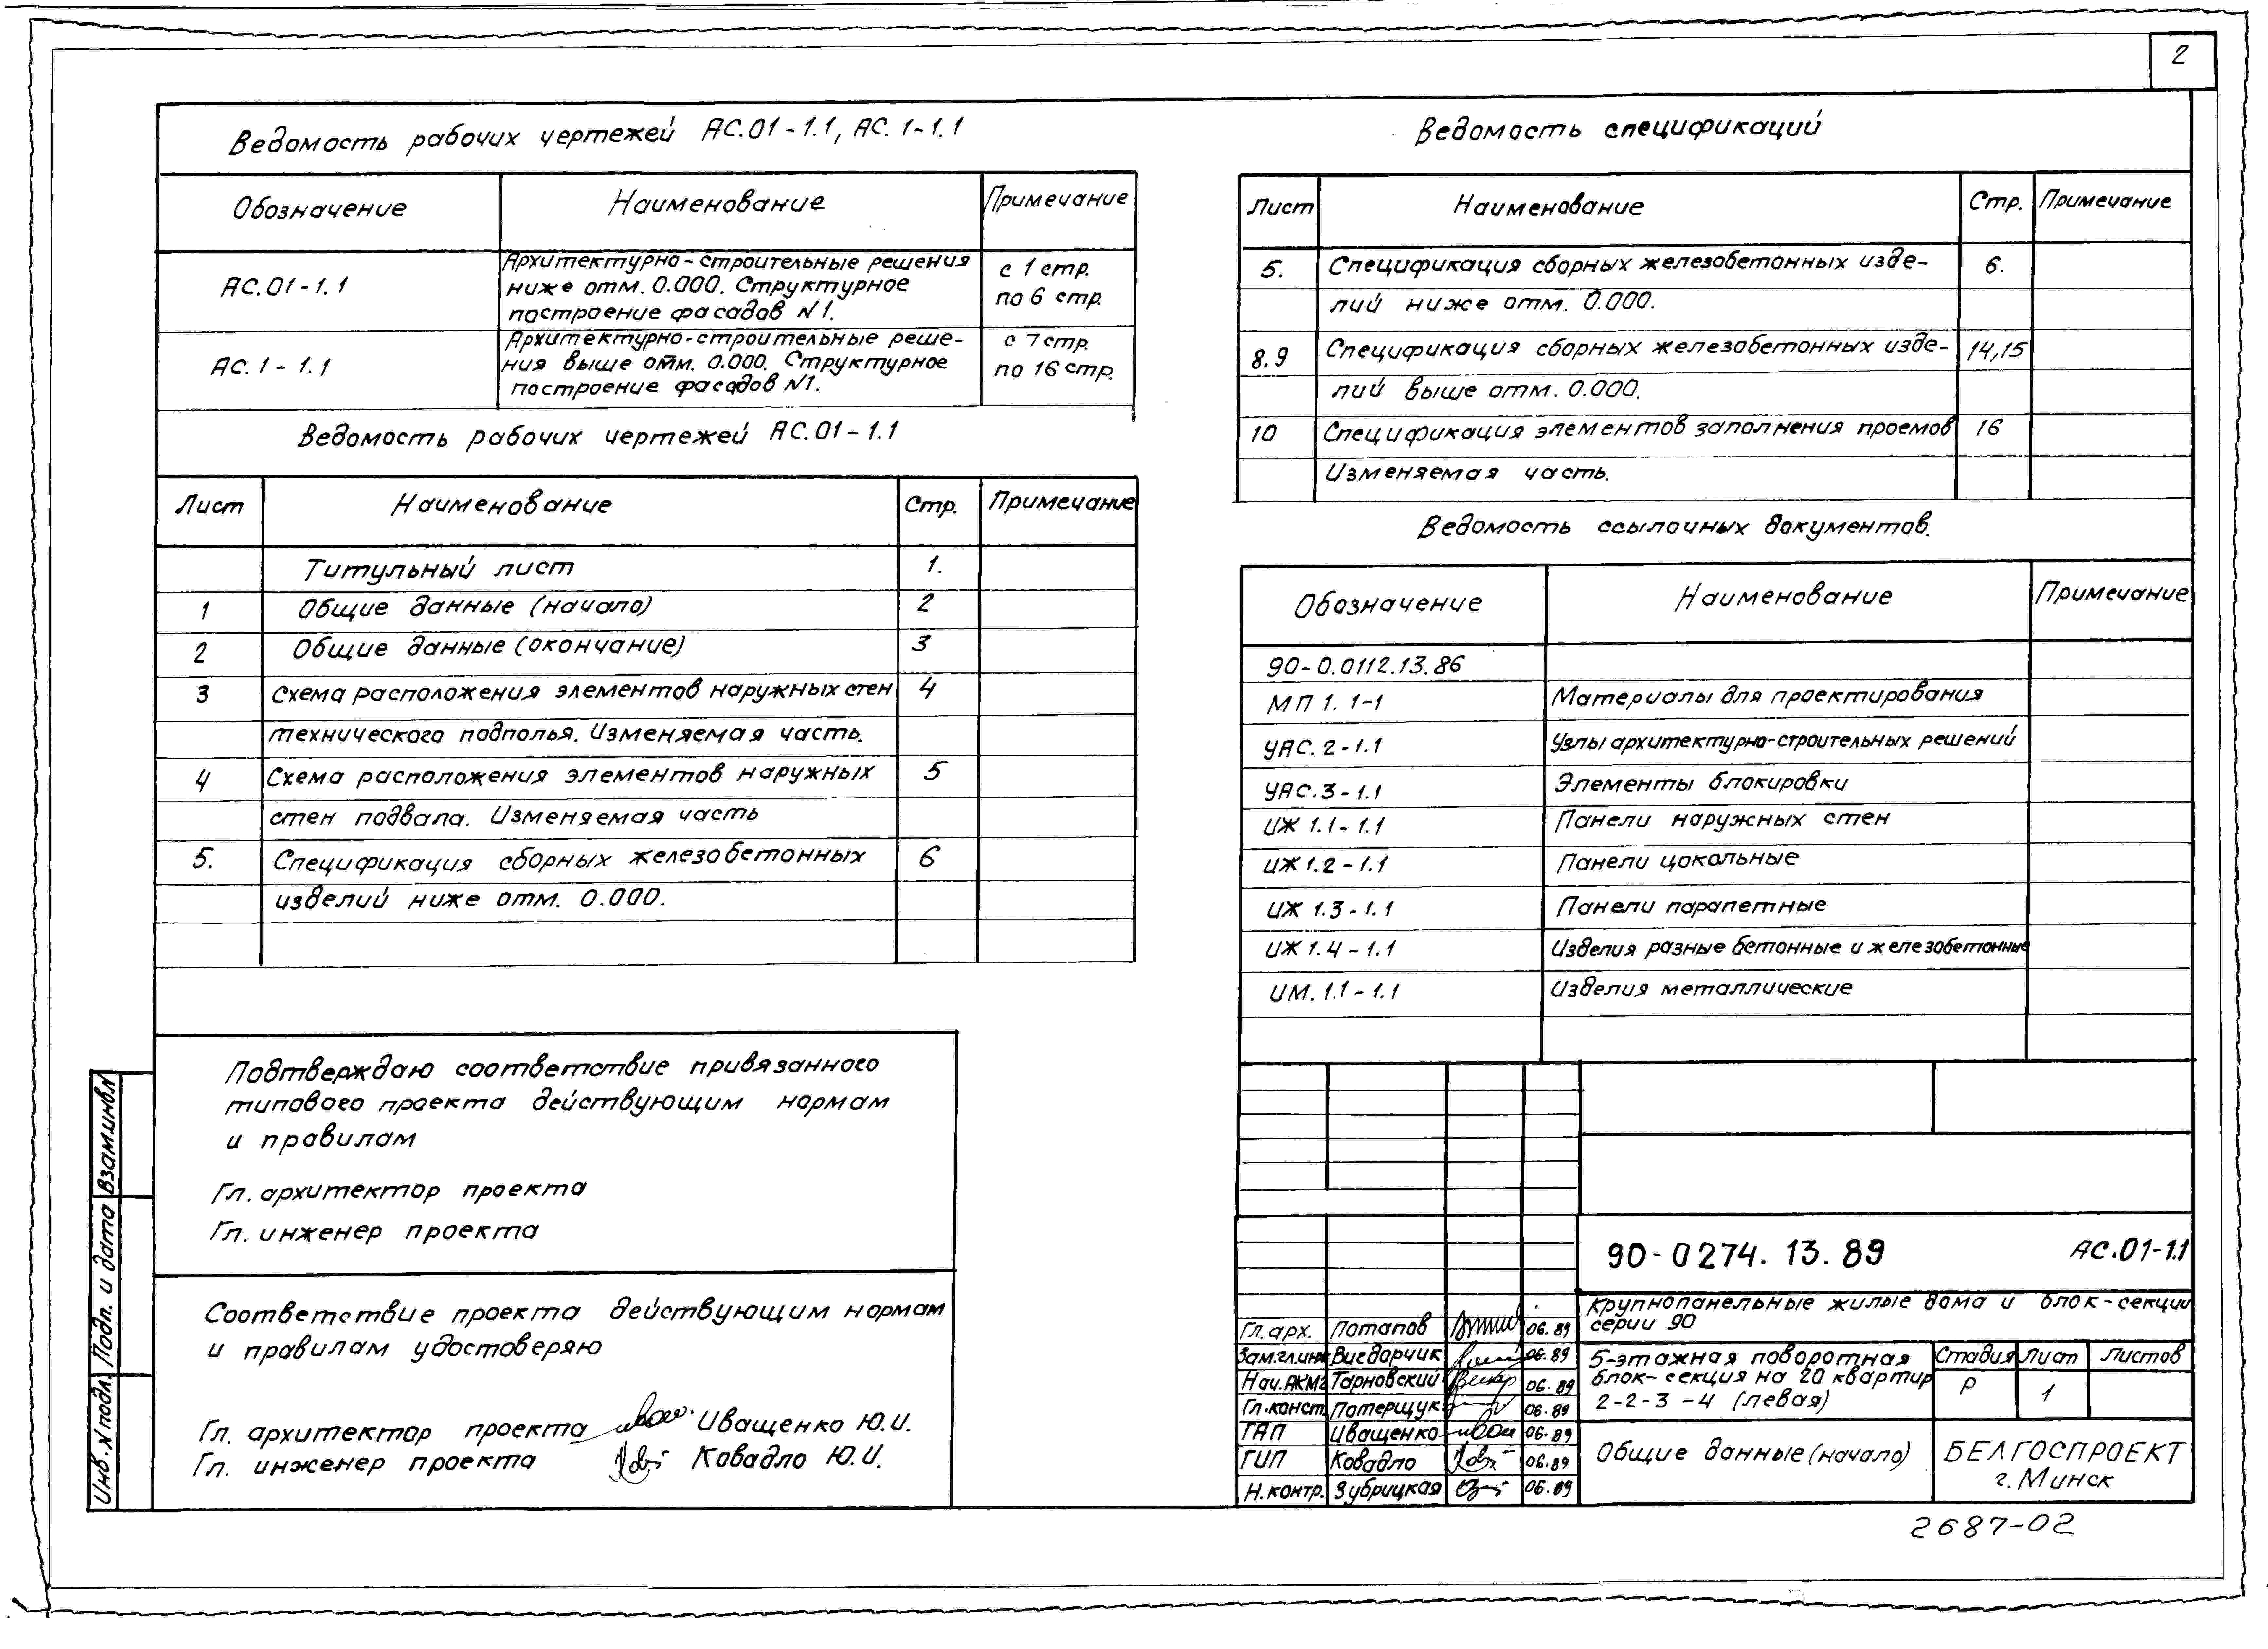 2
Ведомость рабочих чертежей АС.01-1.1, АС.1-1.1
Обозначение Наименование Примечание
АС.01-1.1
Архитектурно-строительные решения
ниже отм. 0.000. Структурное
построение фасадов N1.
с 1 стр.
по 6 стр.
АС.1-1.1
Архитектурно-строительные реше-
ния выше отм. 0.000. Структурное
построение фасадов N1.
с 7 стр.
по 16 стр.
Ведомость рабочих чертежей АС.01-1.1
Лист Наименование Стр. Примечание
Титульный лист 1.
1 Общие данные (начало) 2
2 Общие данные (окончание) 3
3 Схема расположения элементов наружных стен 4
технического подполья. Изменяемая часть.
4 Схема расположения элементов наружных 5
стен подвала. Изменяемая часть
5. Спецификация сборных железобетонных 6
изделий ниже отм. 0.000.
Подтверждаю соответствие привязанного
типового проекта действующим нормам
и правилам
Гл. архитектор проекта
Гл. инженер проекта
Соответствие проекта действующим нормам
и правилам удостоверяю
Гл. архитектор проекта Иващенко Ю.И.
Гл. инженер проекта Ковадло Ю.И.
Взам.инв.N
Подп. и дата
Инв. N подл.
Ведомость спецификаций
Лист Наименование Стр. Примечание
5. Спецификация сборных железобетонных изде- 6.
лий ниже отм. 0.000.
8.9 Спецификация сборных железобетонных изде- 14,15
лий выше отм. 0.000.
10 Спецификация элементов заполнения проемов 16
Изменяемая часть.
Ведомость ссылочных документов.
Обозначение Наименование Примечание
90-0.0112.13.86
МП 1.1-1 Материалы для проектирования
УАС.2-1.1 Узлы архитектурно-строительных решений
УАС.3-1.1 Элементы блокировки
ИЖ 1.1-1.1 Панели наружных стен
ИЖ 1.2-1.1 Панели цокольные
ИЖ 1.3-1.1 Панели парапетные
ИЖ 1.4-1.1 Изделия разные бетонные и железобетонные
ИМ.1.1-1.1 Изделия металлические
90-0274.13.89 АС.01-1.1
Крупнопанельные жилые дома и блок-секции
серии 90
Гл.арх. Потапов 06.89
Зам.гл.инж Вигдорчик 06.89
Нач.АКМ2 Тарновский 06.89
Гл.конст. Потерщук 06.89
ГАП Иващенко 06.89
ГИП Ковадло 06.89
Н.контр. Зубрицкая 06.89
5-этажная поворотная
блок-секция на 20 квартир
2-2-3-4 (левая)
Стадия Лист Листов
Р 1
Общие данные (начало)
БЕЛГОСПРОЕКТ
г. Минск
2687-02